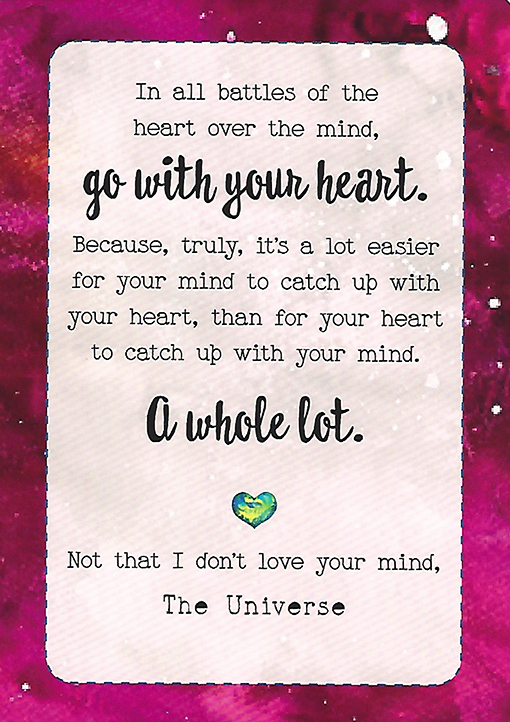 In all battles of the
heart over the mind,
go with your heart.
Because, truly, it's a lot easier
for your mind to catch up with
your heart, than for your heart
to catch up with your mind.
A whole lot.
Not that I don't love your mind,
The Universe